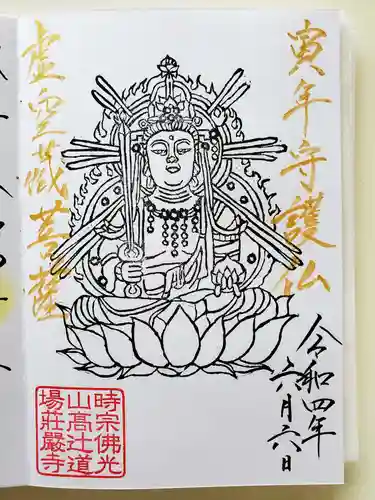 寅年守護仏
虚空蔵菩薩
令和四年
六月六日
時宗佛光
山高辻道
場荘嚴寺